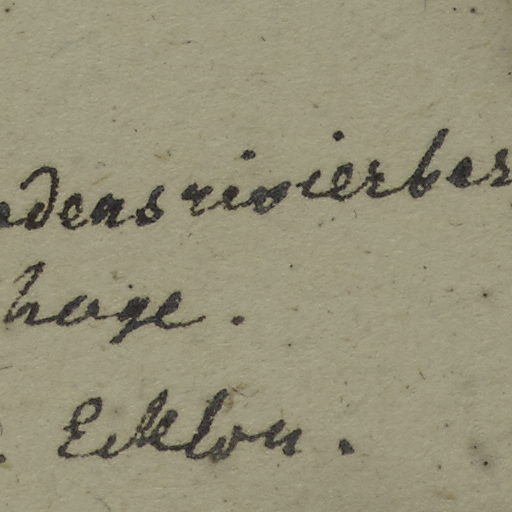 adensrivierber
hage.
Ecklon.